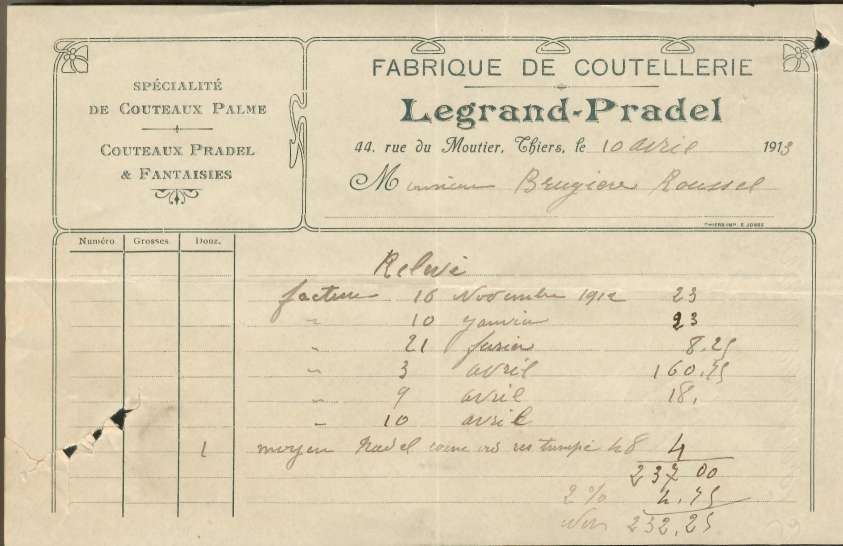 SPÉCIALITÉ
DE COUTEAUX PALME
COUTEAUX PRADEL
& FANTAISIES
FABRIQUE DE COUTELLERIE
Legrand-Pradel
44, rue du Moutier, Thiers, le 10 avril 1913
Monsieur Brugiere Roussel
THIERS IMP. E JOUBE
Numéro Grosses Douz.
Relevé
facture 16 Novembre 1912 23
" 10 Janvier 23
" 21 fevrier 8.25
" 3 avril 160.75
" 9 avril 18.
" 10 avril
1 moyen Pradel corne 48 4
237 00
2 % 4.75
232,25